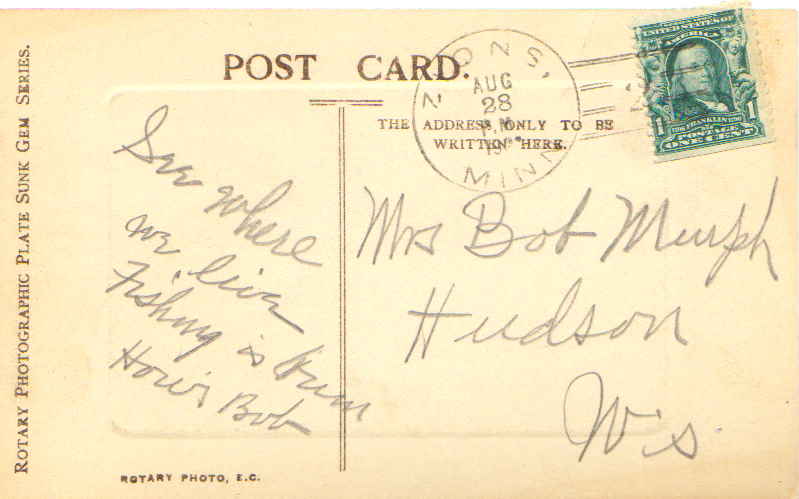 ROTARY PHOTOGRAPHIC PLATE SUNK GEM SERIES.
POST CARD.
THE ADDRESS ONLY TO BE
WRITTEN HERE.
ZIONS,
AUG
28
P.M.
MINN
UNITED STATES OF
AMERICA
1 FRANKLIN 1
POSTAGE
ONE CENT
See where
we live
Fishing is bum
How's Bob
Mrs Bob Murph
Hudson
Wis
ROTARY PHOTO, E.C.